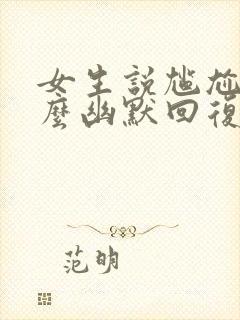 女生說尷尬
麼幽默回復
范明